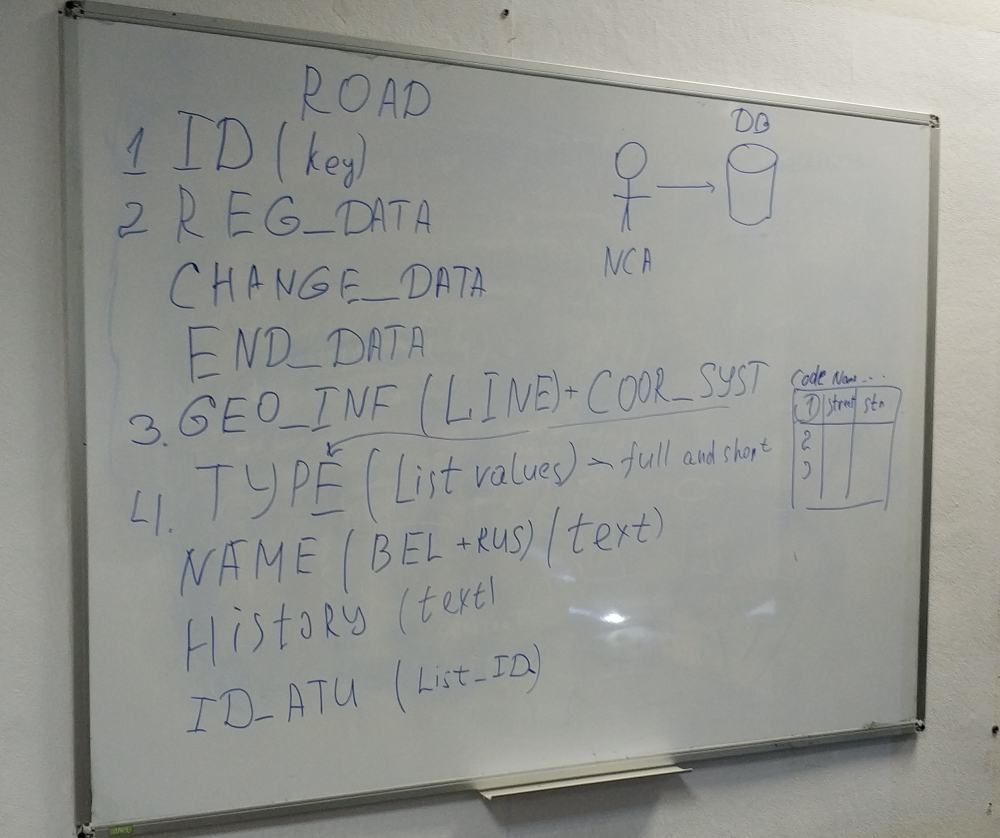 ROAD
1 ID (key)
2 REG_DATA
CHANGE_DATA
END_DATA
3. GEO_INF (LINE)+ COOR_SYST
4. TYPE (List values) → full and short
NAME (BEL + RUS) (text)
HiStORY (text)
ID_ATU (List_ID)
DB
NCA
Code Name...
1 street str
2
3